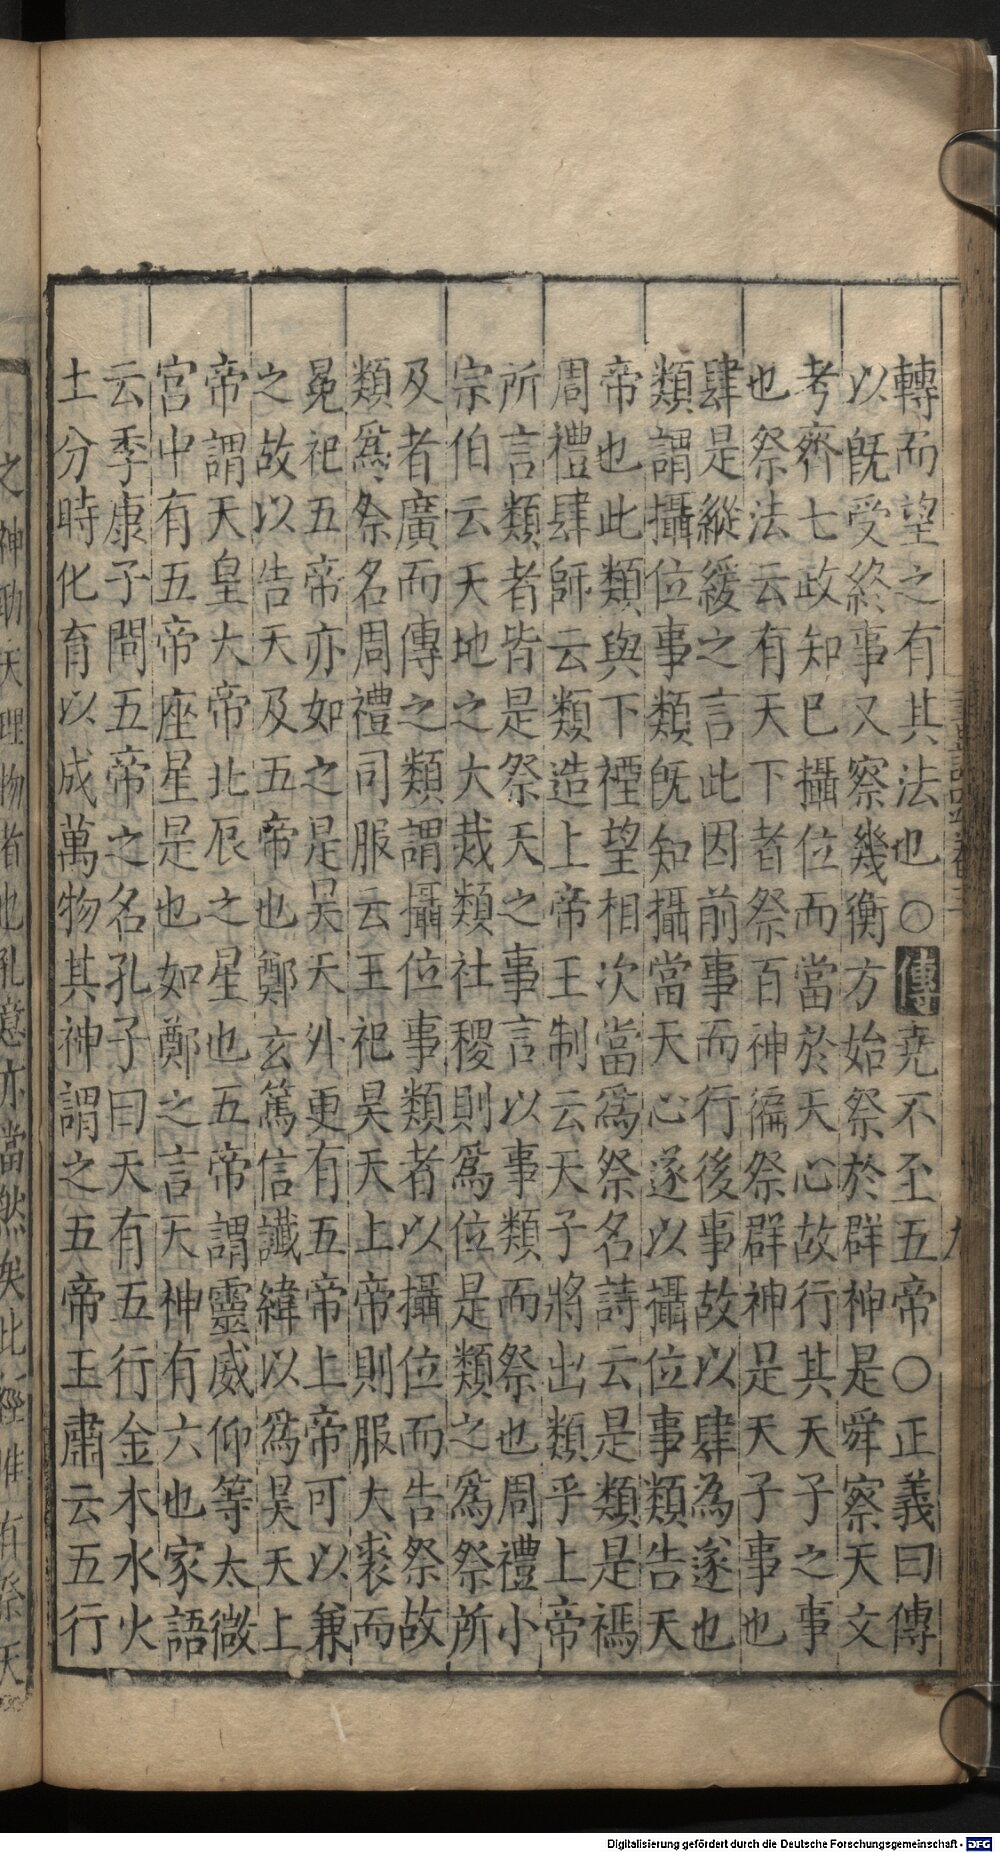 轉而望之有其法也○傳堯不至五帝○正義曰傳
以旣受終事又察幾衡方始祭於群神是舜察天文
考齊七政知已攝位而當於天心故行其天子之事
也祭法云有天下者祭百神徧祭群神是天子事也
肆是縱緩之言此因前事而行後事故以肆為遂也
類謂攝位事類旣知攝當天心遂以攝位事類告天
帝也此類與下禋望相次當爲祭名詩云是類是禡
周禮肆師云類造上帝王制云天子將出類乎上帝
所言類者皆是祭天之事言以事類而祭也周禮小
宗伯云天地之大烖類社稷則爲位是類之爲祭所
及者廣而傳之類謂攝位事類者以攝位而告祭故
類爲祭名周禮司服云王祀昊天上帝則服大裘而
冕祀五帝亦如之是昊天外更有五帝上帝可以兼
之故以告天及五帝也鄭玄篤信讖緯以爲昊天上
帝謂天皇大帝北辰之星也五帝謂靈威仰等太微
宮中有五帝座星是也如鄭之言天神有六也家語
云季康子問五帝之名孔子曰天有五行金木水火
土分時化育以成萬物其神謂之五帝王肅云五行
之神助天理物者也孔意亦當然矣此經唯有祭天
Digitalisierung gefördert durch die Deutsche Forschungsgemeinschaft - DFG